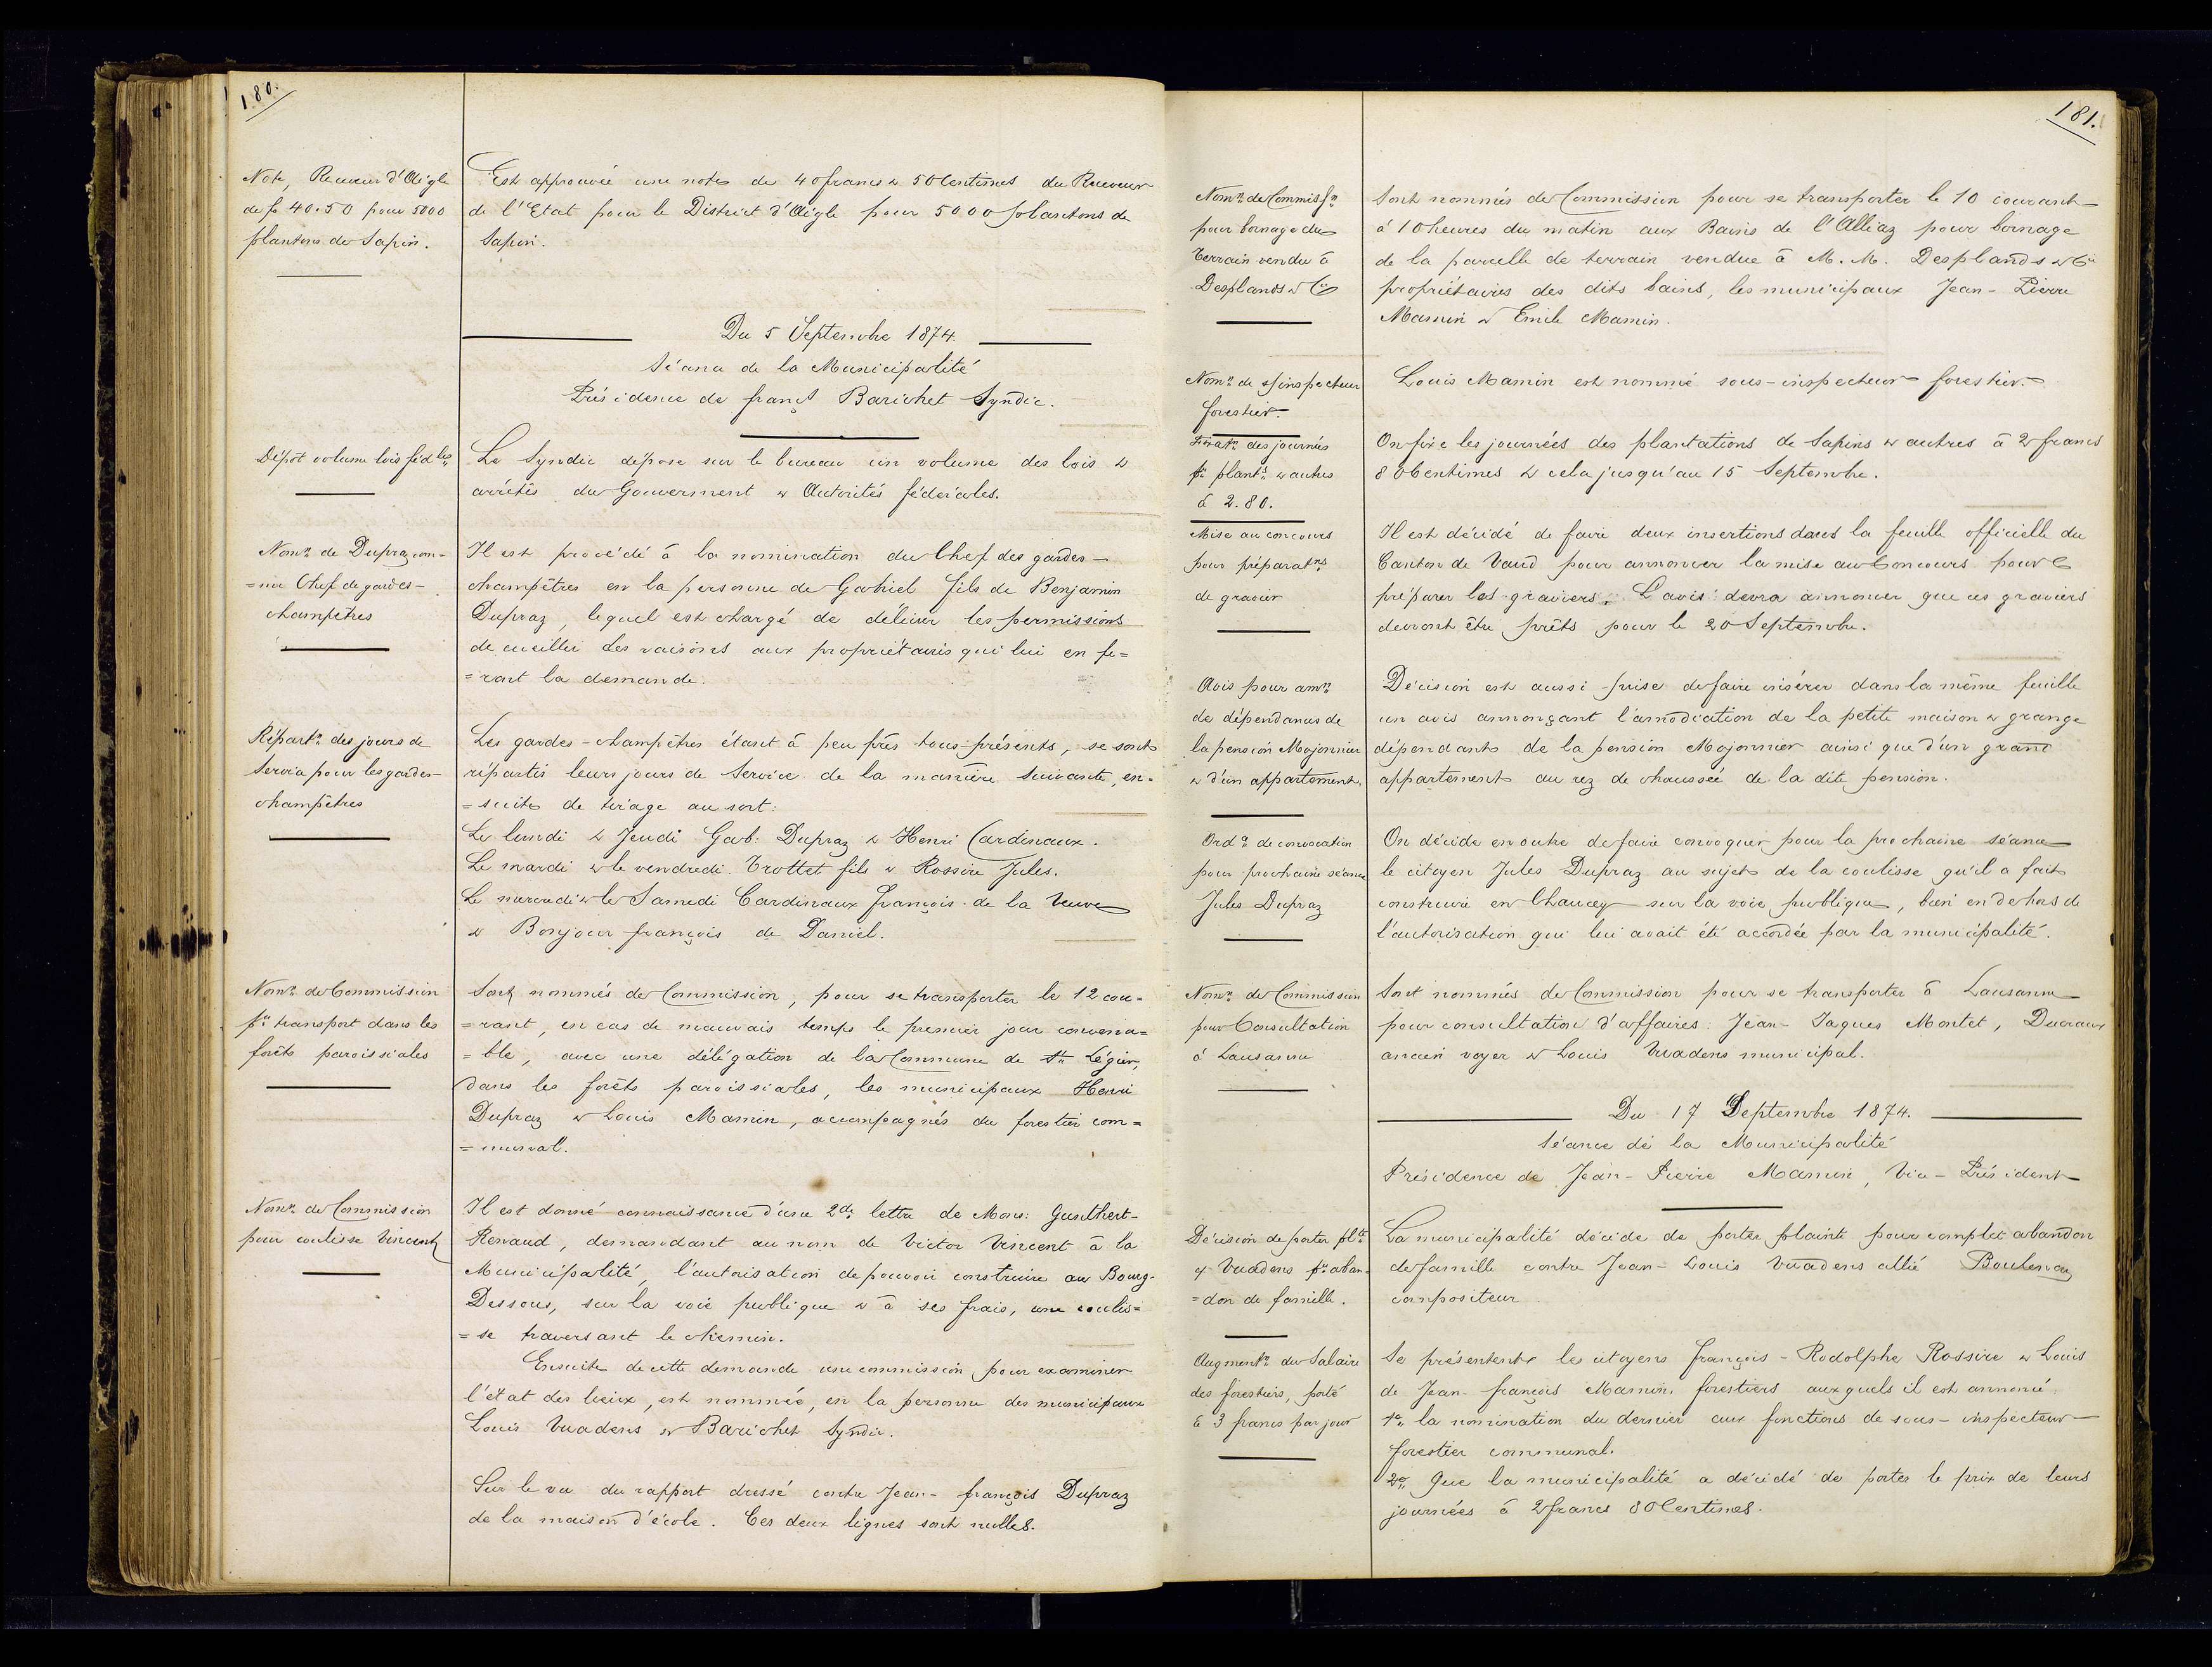 180.
Note, Receveur d'Aigle
de fr 40.50 pour 5000
plantons de Sapin.
Est approuvée une note de 40 francs & 50 Centimes du Receveur
de l'Etat pour le District d'Aigle pour 5000 plantons de
Sapin.
Du 5 Septembre 1874.
Séance de la Municipalité
Présidence de franç.s Barichet Syndic.
Dépôt volume lois féd.les
Le Syndic dépose sur le bureau un volume des lois &
arrêtés du Gouverment & Autorités fédérales.
Nom.n de Dupraz com-
=me Chef de gardes-
champêtres
Il est procédé à la nomination du Chef des gardes-
champêtres en la personne de Gabriel fils de Benjamin
Dupraz, lequel est chargé de délivrer les permissions
de cueillir des raisins aux propriétaires qui lui en fe=
=ront la demande.
Répart.n des jours de
Service pour les gardes-
champêtres
Les gardes-champêtres étant à peu près tous présents, se sont
répartis leurs jours de Service de la manière suivante, en=
=suite de tirage au sort:
Le lundi & Jeudi Gab. Dupraz & Henri Cardinaux.
Le mardi & le vendredi. Trottet fils & Rossire Jules.
Le mercredi & le Samedi Cardinaux François de la Veuve
& Bonjour françois de Daniel.
Nom.n de Commission
p.r transport dans les
forêts paroissiales
Sont nommés de Commission, pour se transporter le 12 cou=
=rant, en cas de mauvais temps le premier jour convena=
=ble, avec une délégation de la Commune de St Légier,
dans les forêts paroissiales, les municipaux Henri
Dupraz & Louis Mamin, accompagnés du forestier com=
=munal.
Nom.n de Commission
pour coulisse Vincent
Il est donné connaissance d'une 2de lettre de Mons: Gunthert-
Renaud, demandant au nom de Victor Vincent à la
Municipalité, l'autorisation de pouvoir construire au Bourg-
Dessous, sur la voie publique & à ses frais, une coulis=
=se traversant le chemin.
Ensuite de cette demande une commission pour examiner
l'état des lieux, est nommée, en la personne des municipaux
Louis Vuadens & Barichet Syndic.
Sur le vu du rapport dressé contre Jean-françois Dupraz
de la maison d'école. Ces deux lignes sont nulles.
181.
Nom.n de Commiss.n
pour bornage du
terrain vendu à
Desplands & Cie
Sont nommés de Commission pour se transporter le 10 courant
à 10 heures du matin aux Bains de l'Alliaz pour bornage
de la parcelle de terrain vendue à M. M. Desplands & Cie
propriétaires des dits bains, les municipaux Jean-Pierre
Mamin & Emile Mamin.
Nom.n de s/inspecteur
forestier.
Louis Mamin est nommé sous-inspecteur forestier.
Fixat.n des journées
p.r plant.s & autres
à 2.80.
On fixe les journées des plantations de Sapins & autres à 2 francs
80 Centimes & cela jusqu'au 15 Septembre.
Mise au concours
pour préparat.ns
de gravier
Il est décidé de faire deux insertions dans la feuille officielle du
Canton de Vaud pour annoncer la mise au Concours pour
préparer les graviers. L'avis devra annoncer que ces graviers
devront être prêts pour le 20 Septembre.
Avis pour am.n
de dépendances de
la pension Mojonnier
& d'un appartement.
Décision est aussi prise de faire insérer dans la même feuille
un avis annonçant l'amodiation de la petite maison & grange
dépendants de la pension Mojonnier ainsi que d'un grand
appartement au rez de chaussée de la dite pension.
Ord.e de convocation
pour prochaine séance
Jules Dupraz
On décide en outre de faire convoquer pour la prochaine séance
le citoyen Jules Dupraz au sujet de la coulisse qu'il a fait
construire en Chaucey sur la voie publique, bien en dehors de
l'autorisation qui lui avait été accordée par la municipalité.
Nom.n de Commission
pour Consultation
à Lausanne
Sont nommés de Commission pour se transporter à Lausanne
pour consultation d'affaires: Jean-Jaques Montet, Ducraux
ancien voyer & Louis Vuadens municipal.
Du 17 Septembre 1874.
Séance de la Municipalité
Présidence de Jean-Pierre Mamin, Vice-Président
Décision de porter pl.te
c/ Vuadens p.r aban-
=don de famille.
La municipalité décide de porter plainte pour complet abandon
de famille contre Jean-Louis Vuadens allié Boulenaz
compositeur
Augment.n du Salaire
des forestiers, porté
à 3 francs par jour
Se présentent les citoyens François-Rodolphe Rossire & Louis
de Jean-françois Mamin, forestiers auxquels il est annoncé:
1o la nomination du dernier aux fonctions de sous-inspecteur
forestier communal.
2o Que la municipalité a décidé de porter le prix de leurs
journées à 2 francs 80 Centimes.